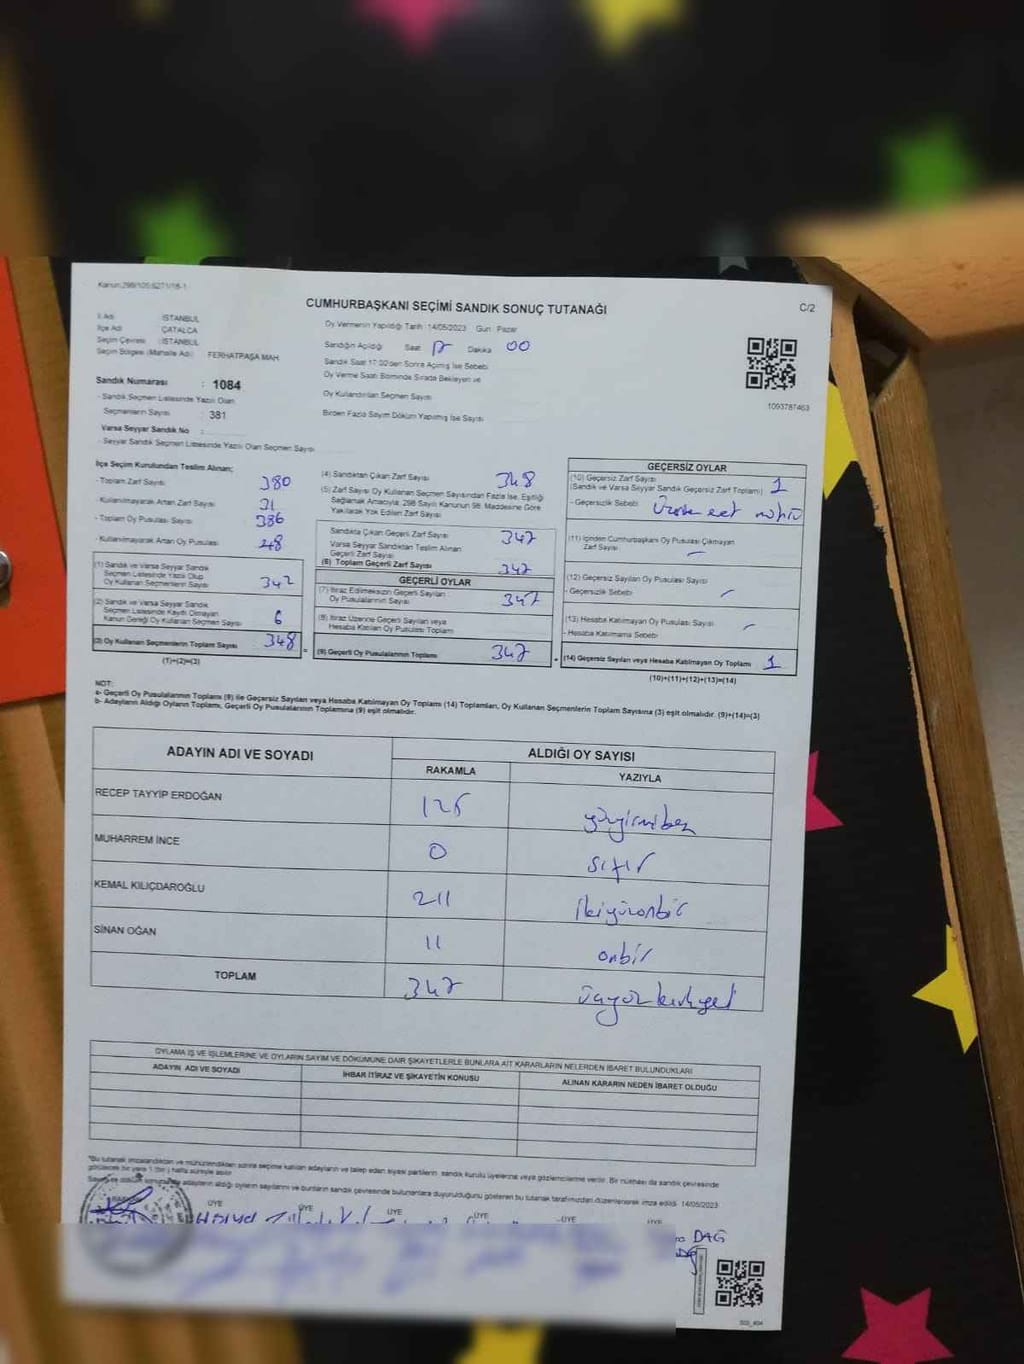 Kanun:298/105;6271/16-1
CUMHURBAŞKANI SEÇİMİ SANDIK SONUÇ TUTANAĞI
C/2
İl Adı : İSTANBUL
İlçe Adı : ÇATALCA
Seçim Çevresi : İSTANBUL
Seçim Bölgesi (Mahalle Adı) : FERHATPAŞA MAH
Oy Vermenin Yapıldığı Tarih :14/05/2023 Gün : Pazar
Sandığın Açıldığı Saat 17 Dakika 00
Sandık Saat 17:00'den Sonra Açılmış İse Sebebi
Oy Verme Saati Bitiminde Sırada Bekleyen ve
Oy Kullandırılan Seçmen Sayısı
Birden Fazla Sayım Döküm Yapılmış İse Sayısı
1093787463
Sandık Numarası : 1084
- Sandık Seçmen Listesinde Yazılı Olan
Seçmenlerin Sayısı : 381
Varsa Seyyar Sandık No :
- Seyyar Sandık Seçmen Listesinde Yazılı Olan Seçmen Sayısı
İlçe Seçim Kurulundan Teslim Alınan;
- Toplam Zarf Sayısı 380
- Kullanılmayarak Artan Zarf Sayısı 31
- Toplam Oy Pusulası Sayısı 386
- Kullanılmayarak Artan Oy Pusulası 48
(1) Sandık ve Varsa Seyyar Sandık
Seçmen Listesinde Yazılı Olup
Oy Kullanan Seçmenlerin Sayısı 342
(2) Sandık ve Varsa Seyyar Sandık
Seçmen Listesinde Kayıtlı Olmayan
Kanun Gereği Oy Kullanan Seçmen Sayısı 6
(3) Oy Kullanan Seçmenlerin Toplam Sayısı 348
(1)+(2)=(3)
(4) Sandıktan Çıkan Zarf Sayısı 348
(5) Zarf Sayısı Oy Kullanan Seçmen Sayısından Fazla İse, Eşitliği
Sağlamak Amacıyla; 298 Sayılı Kanunun 98. Maddesine Göre
Yakılarak Yok Edilen Zarf Sayısı
Sandıkta Çıkan Geçerli Zarf Sayısı 347
Varsa Seyyar Sandıktan Teslim Alınan
Geçerli Zarf Sayısı
(6) Toplam Geçerli Zarf Sayısı 347
GEÇERLİ OYLAR
(7) İtiraz Edilmeksizin Geçerli Sayılan
Oy Pusulalarının Sayısı 347
(8) İtiraz Üzerine Geçerli Sayılan veya
Hesaba Katılan Oy Pusulası Toplamı
(9) Geçerli Oy Pusulalarının Toplamı 347
GEÇERSİZ OYLAR
(10) Geçersiz Zarf Sayısı
(Sandık ve Varsa Seyyar Sandık Geçersiz Zarf Toplamı) 1
- Geçersizlik Sebebi
(11) İçinden Cumhurbaşkanı Oy Pusulası Çıkmayan
Zarf Sayısı –
(12) Geçersiz Sayılan Oy Pusulası Sayısı
- Geçersizlik Sebebi –
(13) Hesaba Katılmayan Oy Pusulası Sayısı –
- Hesaba Katılmama Sebebi
(14) Geçersiz Sayılan veya Hesaba Katılmayan Oy Toplamı 1
(10)+(11)+(12)+(13)=(14)
NOT:
a- Geçerli Oy Pusulalarının Toplamı (9) ile Geçersiz Sayılan veya Hesaba Katılmayan Oy Toplamı (14) Toplamları, Oy Kullanan Seçmenlerin Toplam Sayısına (3) eşit olmalıdır. (9)+(14)=(3)
b- Adayların Aldığı Oyların Toplamı, Geçerli Oy Pusulalarının Toplamına (9) eşit olmalıdır.
ADAYIN ADI VE SOYADI
ALDIĞI OY SAYISI
RAKAMLA YAZIYLA
RECEP TAYYİP ERDOĞAN 125 yüzyirmibeş
MUHARREM İNCE 0 sıfır
KEMAL KILIÇDAROĞLU 211 ikiyüzonbir
SİNAN OĞAN 11 onbir
TOPLAM 347 üçyüzkırkyedi
OYLAMA İŞ VE İŞLEMLERİNE VE OYLARIN SAYIM VE DÖKÜMÜNE DAİR ŞİKAYETLERLE BUNLARA AİT KARARLARIN NELERDEN İBARET BULUNDUKLARI
ADAYIN ADI VE SOYADI İHBAR İTİRAZ VE ŞİKAYETİN KONUSU ALINAN KARARIN NEDEN İBARET OLDUĞU
*Bu tutanak imzalandıktan ve mühürlendikten sonra seçime katılan adayların ve talep eden siyasi partilerin sandık kurulu üyelerine veya gözlemcilerine verilir. Bir nüshası da sandık çevresinde
görülecek bir yere 1 (bir) hafta süreyle asılır.
adayların aldığı oyların sayılarını ve bunların sandık çevresinde bulunanlara duyurulduğunu gösteren bu tutanak tarafımızdan düzenlenerek imza edildi. 14/05/2023
BAŞKAN ÜYE ÜYE ÜYE ÜYE ÜYE ÜYE
DAĞ